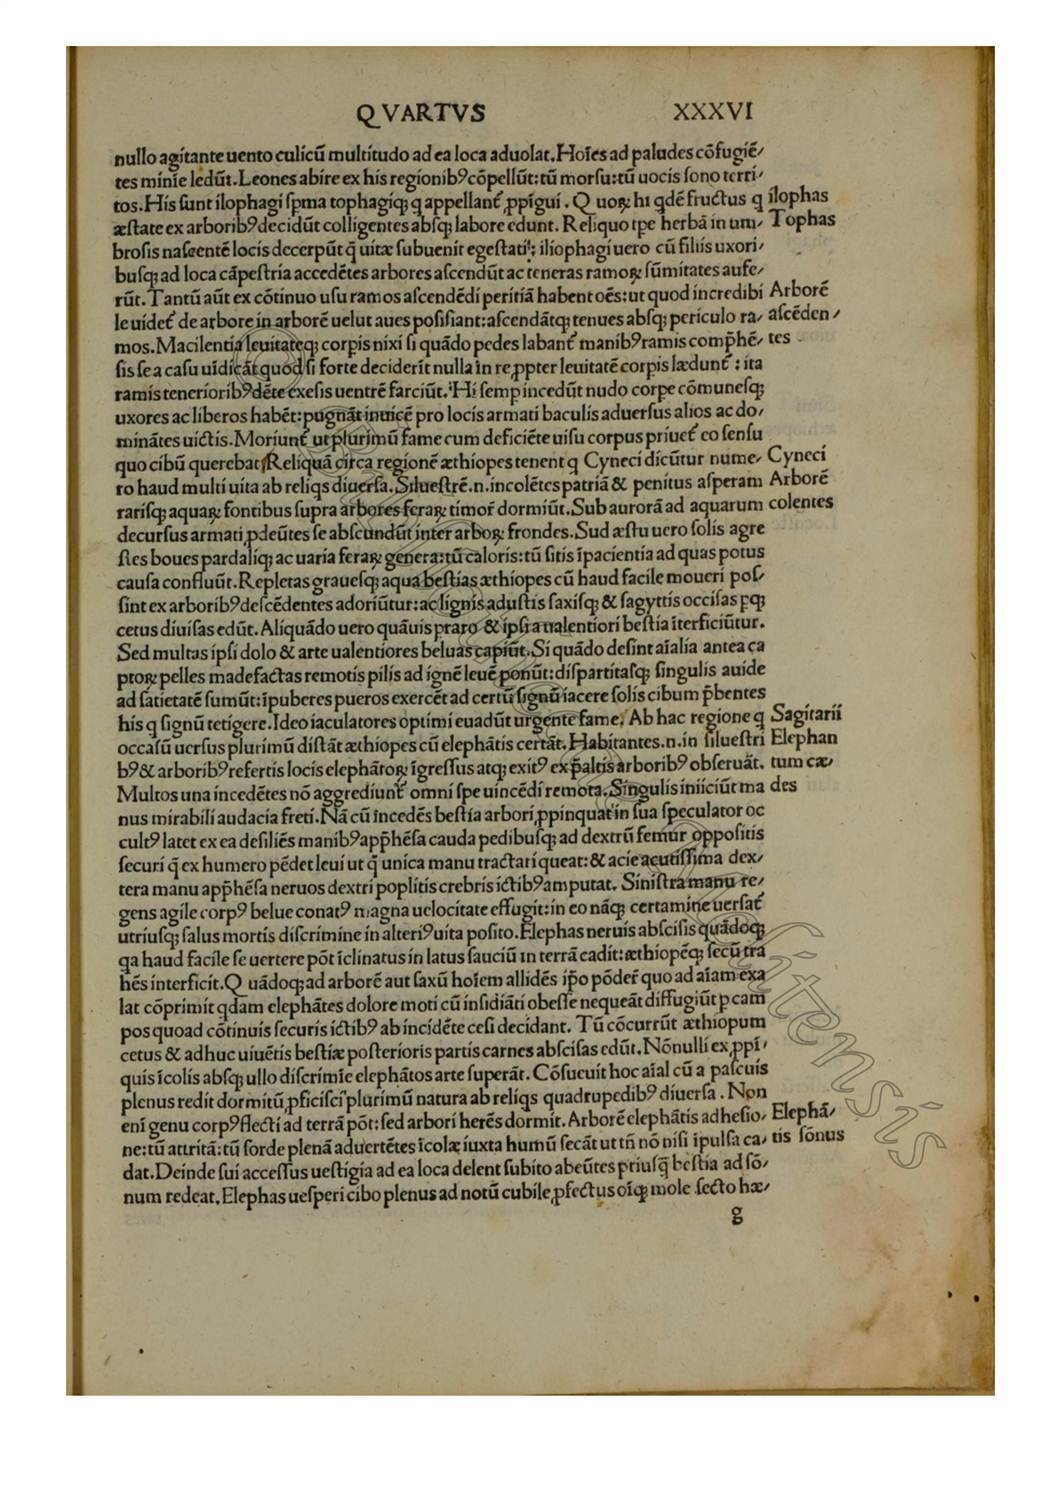 QVARTVS XXXVI
nullo agitante uento culicū multitudo ad ea loca aduolat. Hoīes ad paludes cōfugiē/
tes minīe ledūt. Leones abire ex his regionibꝰ cōpellūt: tū morsu: tū uocis sono terri/
tos. His sunt ilophagi spma tophagiqꝫ q appellant᷑ ꝓpīgui. Quoꝝ hi qdē fructus q ilophas
æstate ex arboribꝰ decidūt colligentes absqꝫ labore edunt. Reliquo tpe herbā in um/ Tophas
brosis nascentē locis decerpūt q̄ uitæ subuenit egestati: iliophagi uero cū filiis uxori/
busqꝫ ad loca cāpestria accedētes arbores ascendūt ac teneras ramoꝝ sūmitates aufe/
rūt. Tantū aūt ex cōtinuo usu ramos ascendēdi peritiā habent oēs: ut quod incredibi Arborē
le uidet᷑ de arbore in arborē uelut aues posisiant: ascendātqꝫ tenues absqꝫ periculo ra/ ascēden/
mos. Macilentia leuitateqꝫ corpis nixi si quādo pedes labant᷑ manibꝰ ramis comp̄hē/ tes
sis se a casu uidicāt quod si forte deciderīt nulla in re ꝓpter leuitatē corpis lædunt᷑: ita
ramis tenerioribꝰ dēte exesis uentrē farciūt. Hi semp incedūt nudo corpe cōmunesqꝫ
uxores ac liberos habēt: pugnāt inuicē pro locis armati baculis aduersus alios ac do/
minātes uictis. Moriunt᷑ ut plurimū fame cum deficiēte uisu corpus priuet᷑ eo sensu
quo cibū querebat Reliquā circa regionē æthiopes tenent q Cyneci dicūtur nume/ Cyneci
ro haud multi uita ab reliqs diuersa. Siluestrē .n. incolētes patriā & penitus asperam Arborē
rarisqꝫ aquaꝝ fontibus supra arbores feraꝝ timor᷑ dormiūt. Sub aurorā ad aquarum colentes
decursus armati ꝓdeūtes se abscundūt inter arboꝝ frondes. Sud æstu uero solis agre
stes boues pardaliqꝫ ac uaria feraꝝ genera: tū caloris: tū sitis īpacientia ad quas potus
causa confluūt. Repletas grauesqꝫ aqua bestias æthiopes cū haud facile moueri pos/
sint ex arboribꝰ descēdentes adoriūtur: ac lignis adustis saxisqꝫ & sagyttis occisas ꝑqꝫ
cetus diuisas edūt. Aliquādo uero quāuis praro & ipsi a ualentiori bestia īterficiūtur.
Sed multas ipsi dolo & arte ualentiores beluas capiūt. Si quādo desint aīalia antea ca
ptoꝝ pelles madefactas remotis pilis ad ignē leuē ponūt: dispartitasqꝫ singulis auide
ad satietatē sumūt: īpuberes pueros exercēt ad certū signū iacere solis cibum p̄bentes
his q signū tetigere. Ideo iaculatores optimi euadūt urgente fame. Ab hac regione q Sagitarii
occasū uersus plurimū distāt æthiopes cū elephātis certāt. Habitantes .n. in siluestri Elephan
bꝰ & arboribꝰ refertis locis elephātoꝝ īgressus atqꝫ exitꝰ ex p̄altis arboribꝰ obseruāt. tum cæ/
Multos una incedētes nō aggrediunt᷑ omni spe uincēdi remota. Singulis iniiciūt ma des
nus mirabili audacia freti. Nā cū īncedēs bestia arbori ꝓpinquat in sua speculator oc
cultꝰ latet ex ea desiliēs manibꝰ app̄hēsa cauda pedibusqꝫ ad dextrū femur oppositis
securi q̄ ex humero pēdet leui ut q̄ unica manu tractari queat: & acie acutissima dex/
tera manu app̄hēsa neruos dextri poplitis crebris ictibꝰ amputat. Sinistra manu re/
gens agile corpꝰ belue conatꝰ magna uelocitate effugit: in eo nāqꝫ certamine uersat᷑
utriusqꝫ salus mortis discrimine in alteriꝰ uita posito. Elephas neruis abscisis quādoqꝫ
qa haud facile se uertere pōt īclinatus in latus sauciū in terrā cadit: æthiopēqꝫ secū tra
hēs interficit. Quādoqꝫ ad arborē aut saxū hoīem allidēs ip̄o pōder᷑ quo ad aīam exa
lat cōprimit qdam elephātes dolore moti cū insidiāti obesse nequeāt diffugiūt ꝑ cam
pos quoad cōtinuis securis ictibꝰ ab incidēte cesi decidant. Tū cōcurrūt æthiopum
cetus & adhuc uiuētis bestiæ posterioris partis carnes abscisas edūt. Nōnulli ex ꝓpī/
quis īcolis absqꝫ ullo discrimīe elephātos arte superāt. Cōsueuit hoc aīal cū a pascuis
plenus redit dormitū ꝓficisci plurimū natura ab reliqs quadrupedibꝰ diuersa. Non
enī genu corpꝰ flecti ad terrā pōt: sed arbori herēs dormit. Arborē elephātis adhesio/ Elephā/
ne: tū attritā: tū sorde plenā aduertētes īcolæ iuxta humū secāt ut tn̄ nō nisi īpulsa ca/ tis sōnus
dat. Deinde sui accessus uestigia ad ea loca delent subito abeūtes priusq̄ bestia ad sō/
num redeat. Elephas uesperi cibo plenus ad notū cubile ꝓfectus oīqꝫ mole secto hæ/
g